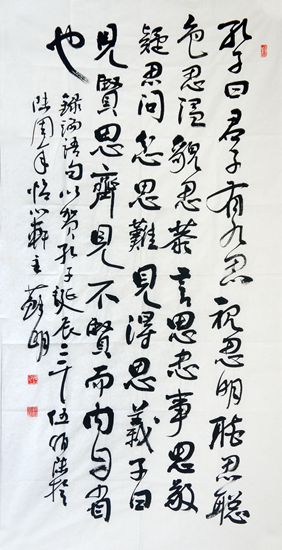 孔子曰君子有九思視思明聽思聰
色思溫貌思恭言思忠事思敬
疑思問忿思難見得思義子曰
見賢思齊見不賢而內自省
也
錄論語句以賀孔子誕辰二千伍佰陸拾
陸周年悟心軒主蘇明